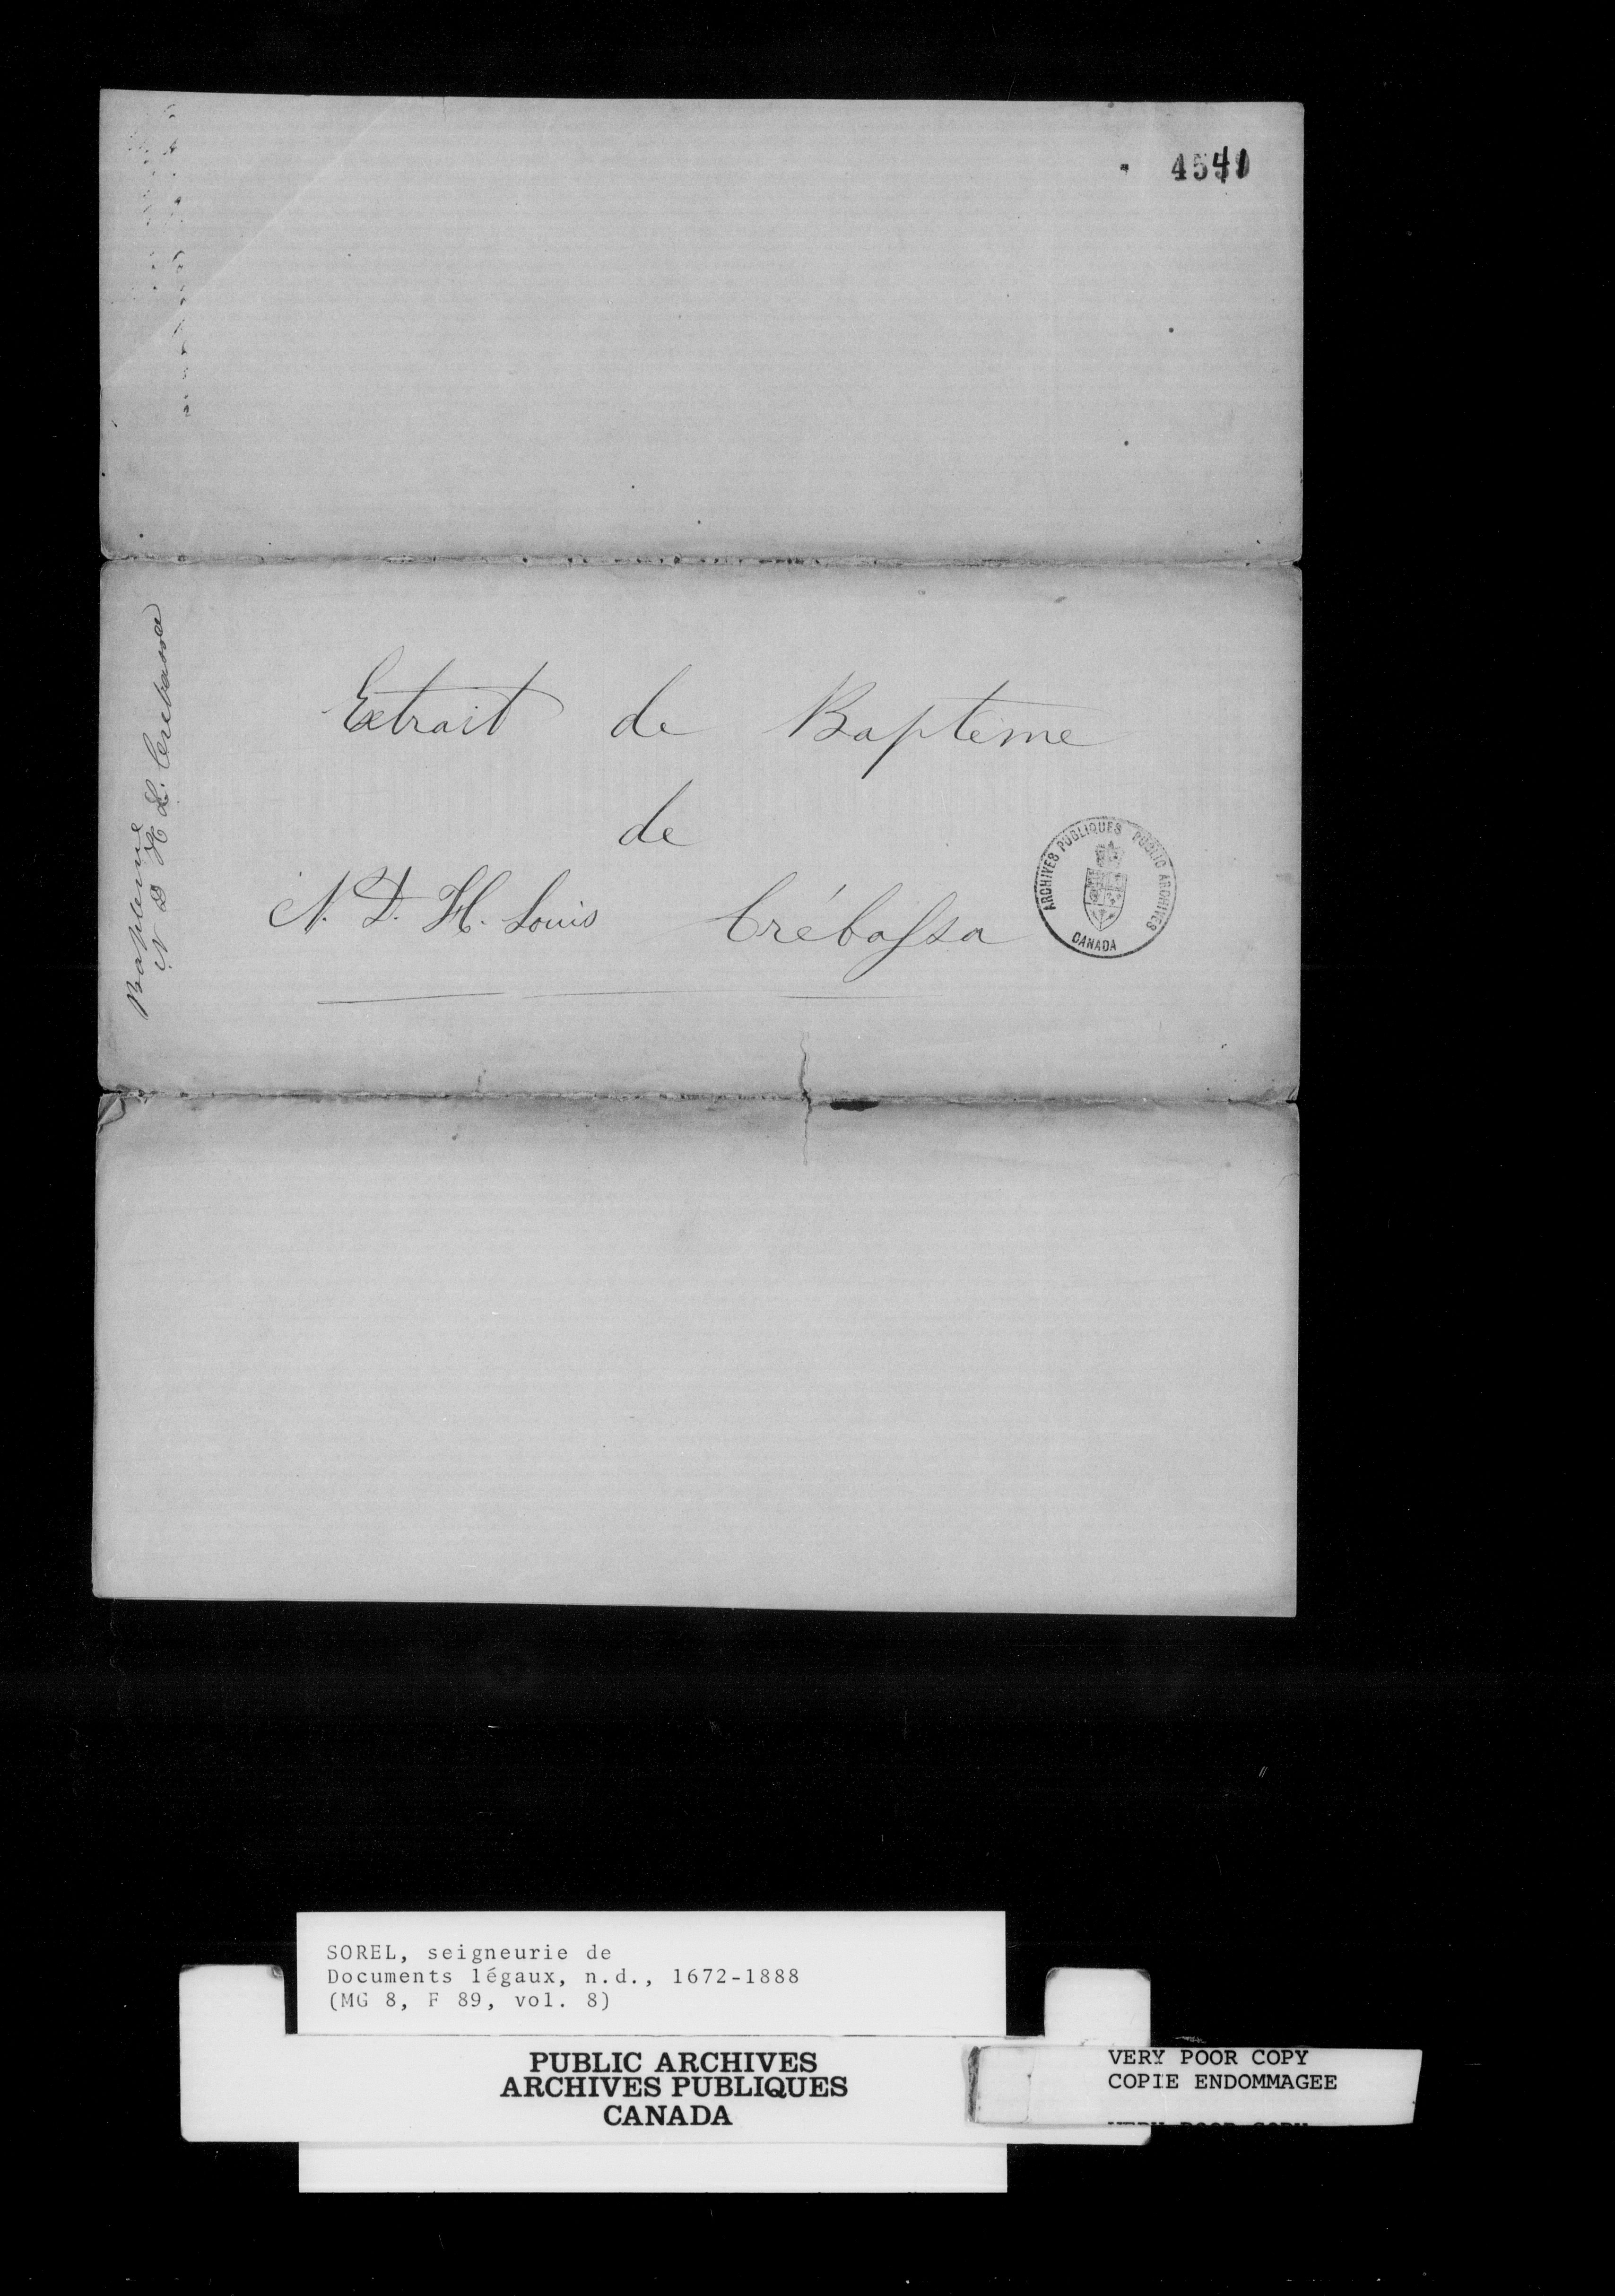 4541
Extrait de Baptême
de
N. D. H. Louis Crébassa
Bapteme
N D H L. Crebassa
ARCHIVES PUBLIQUES PUBLIC ARCHIVES
CANADA
SOREL, seigneurie de
Documents légaux, n.d., 1672-1888
(MG 8, F 89, vol. 8)
PUBLIC ARCHIVES
ARCHIVES PUBLIQUES
CANADA
VERY POOR COPY
COPIE ENDOMMAGEE
VERY POOR COPY